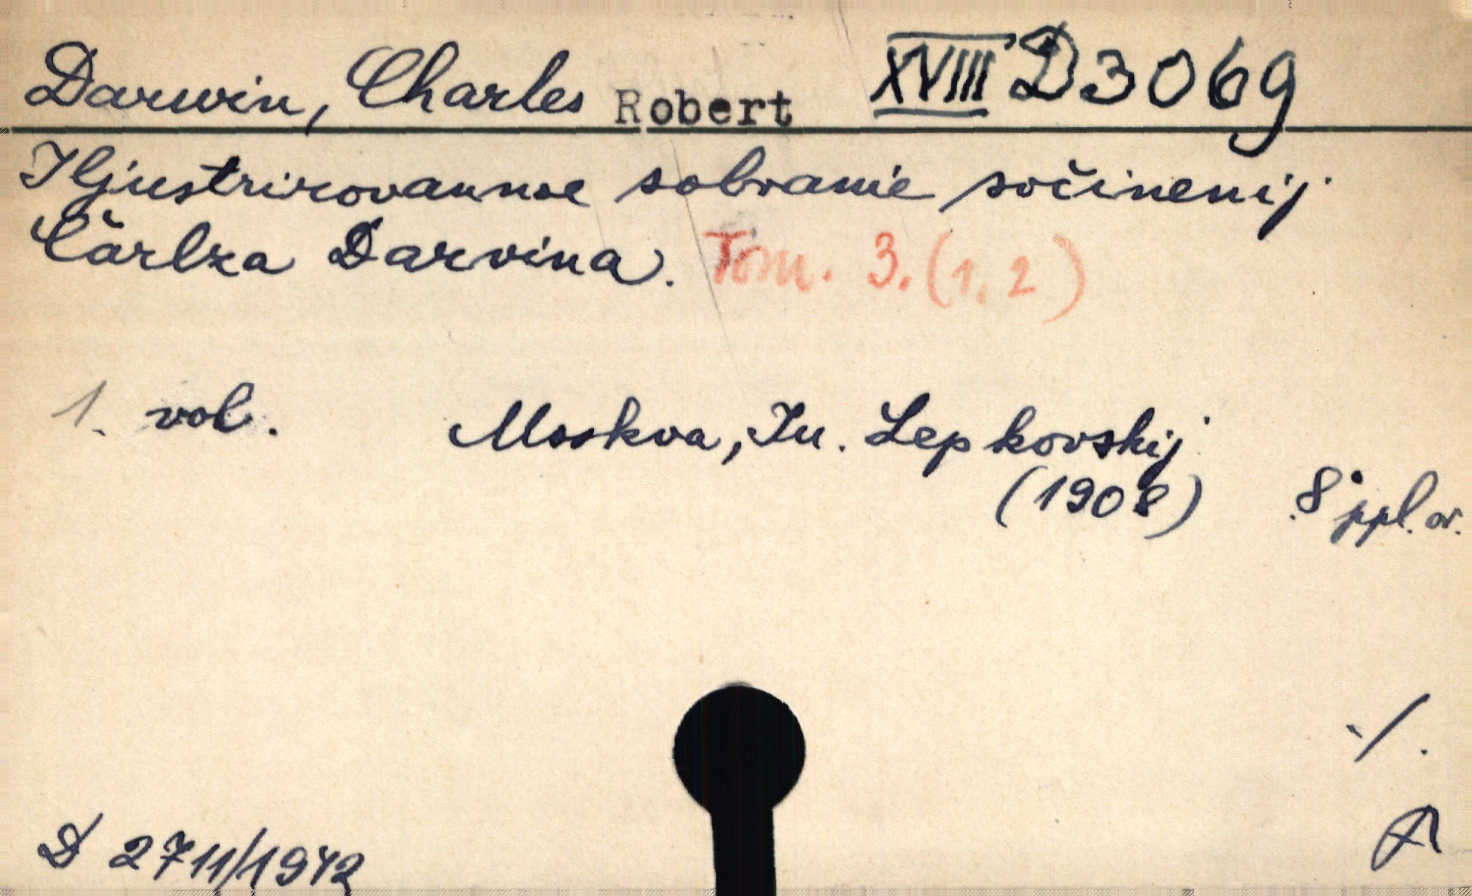 Darwin, Charles Robert XVIII D 3069
Iljustrirovannoe sobranie sočinenij
Čarlza Darvina. Tom. 3. (1. 2)
1. vol. Moskva, Ju. Lepkovskij
(1908) 8° ppl. or.
./.
D 2711/1942